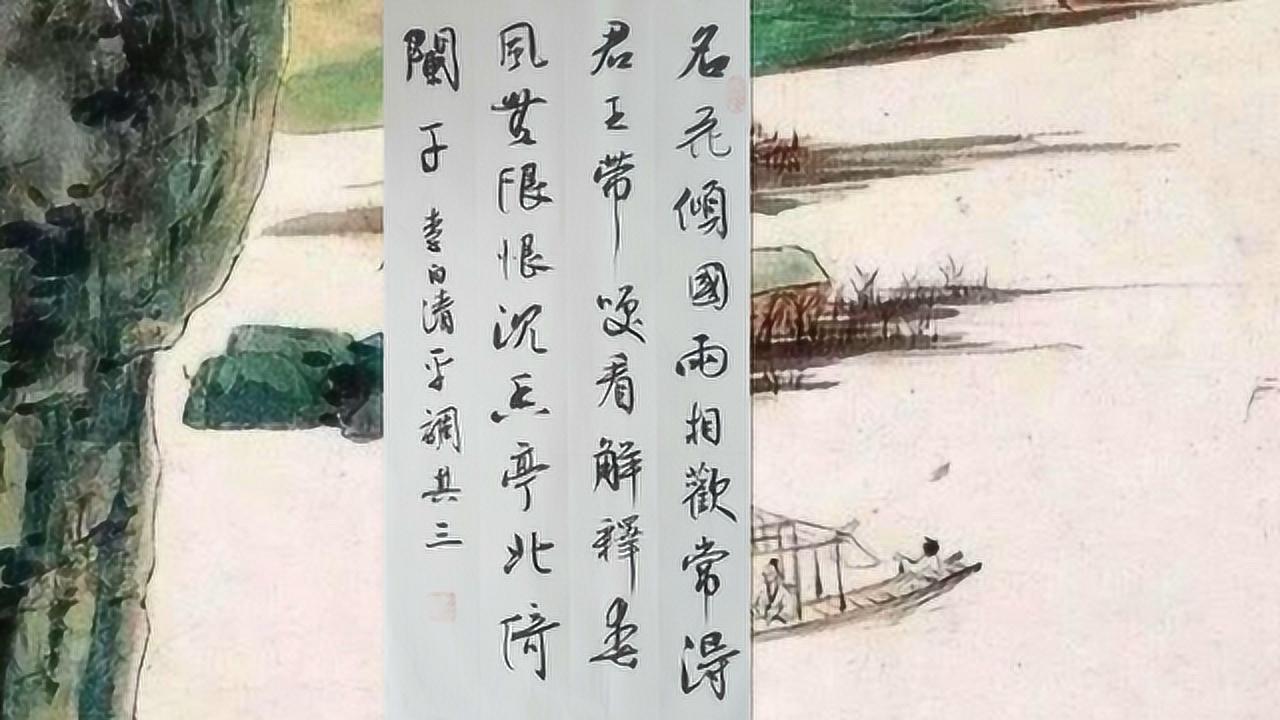 名花傾國兩相歡常得
君王帶咲看解釋春
風無限恨沉香亭北倚
闌干 李白清平調其三